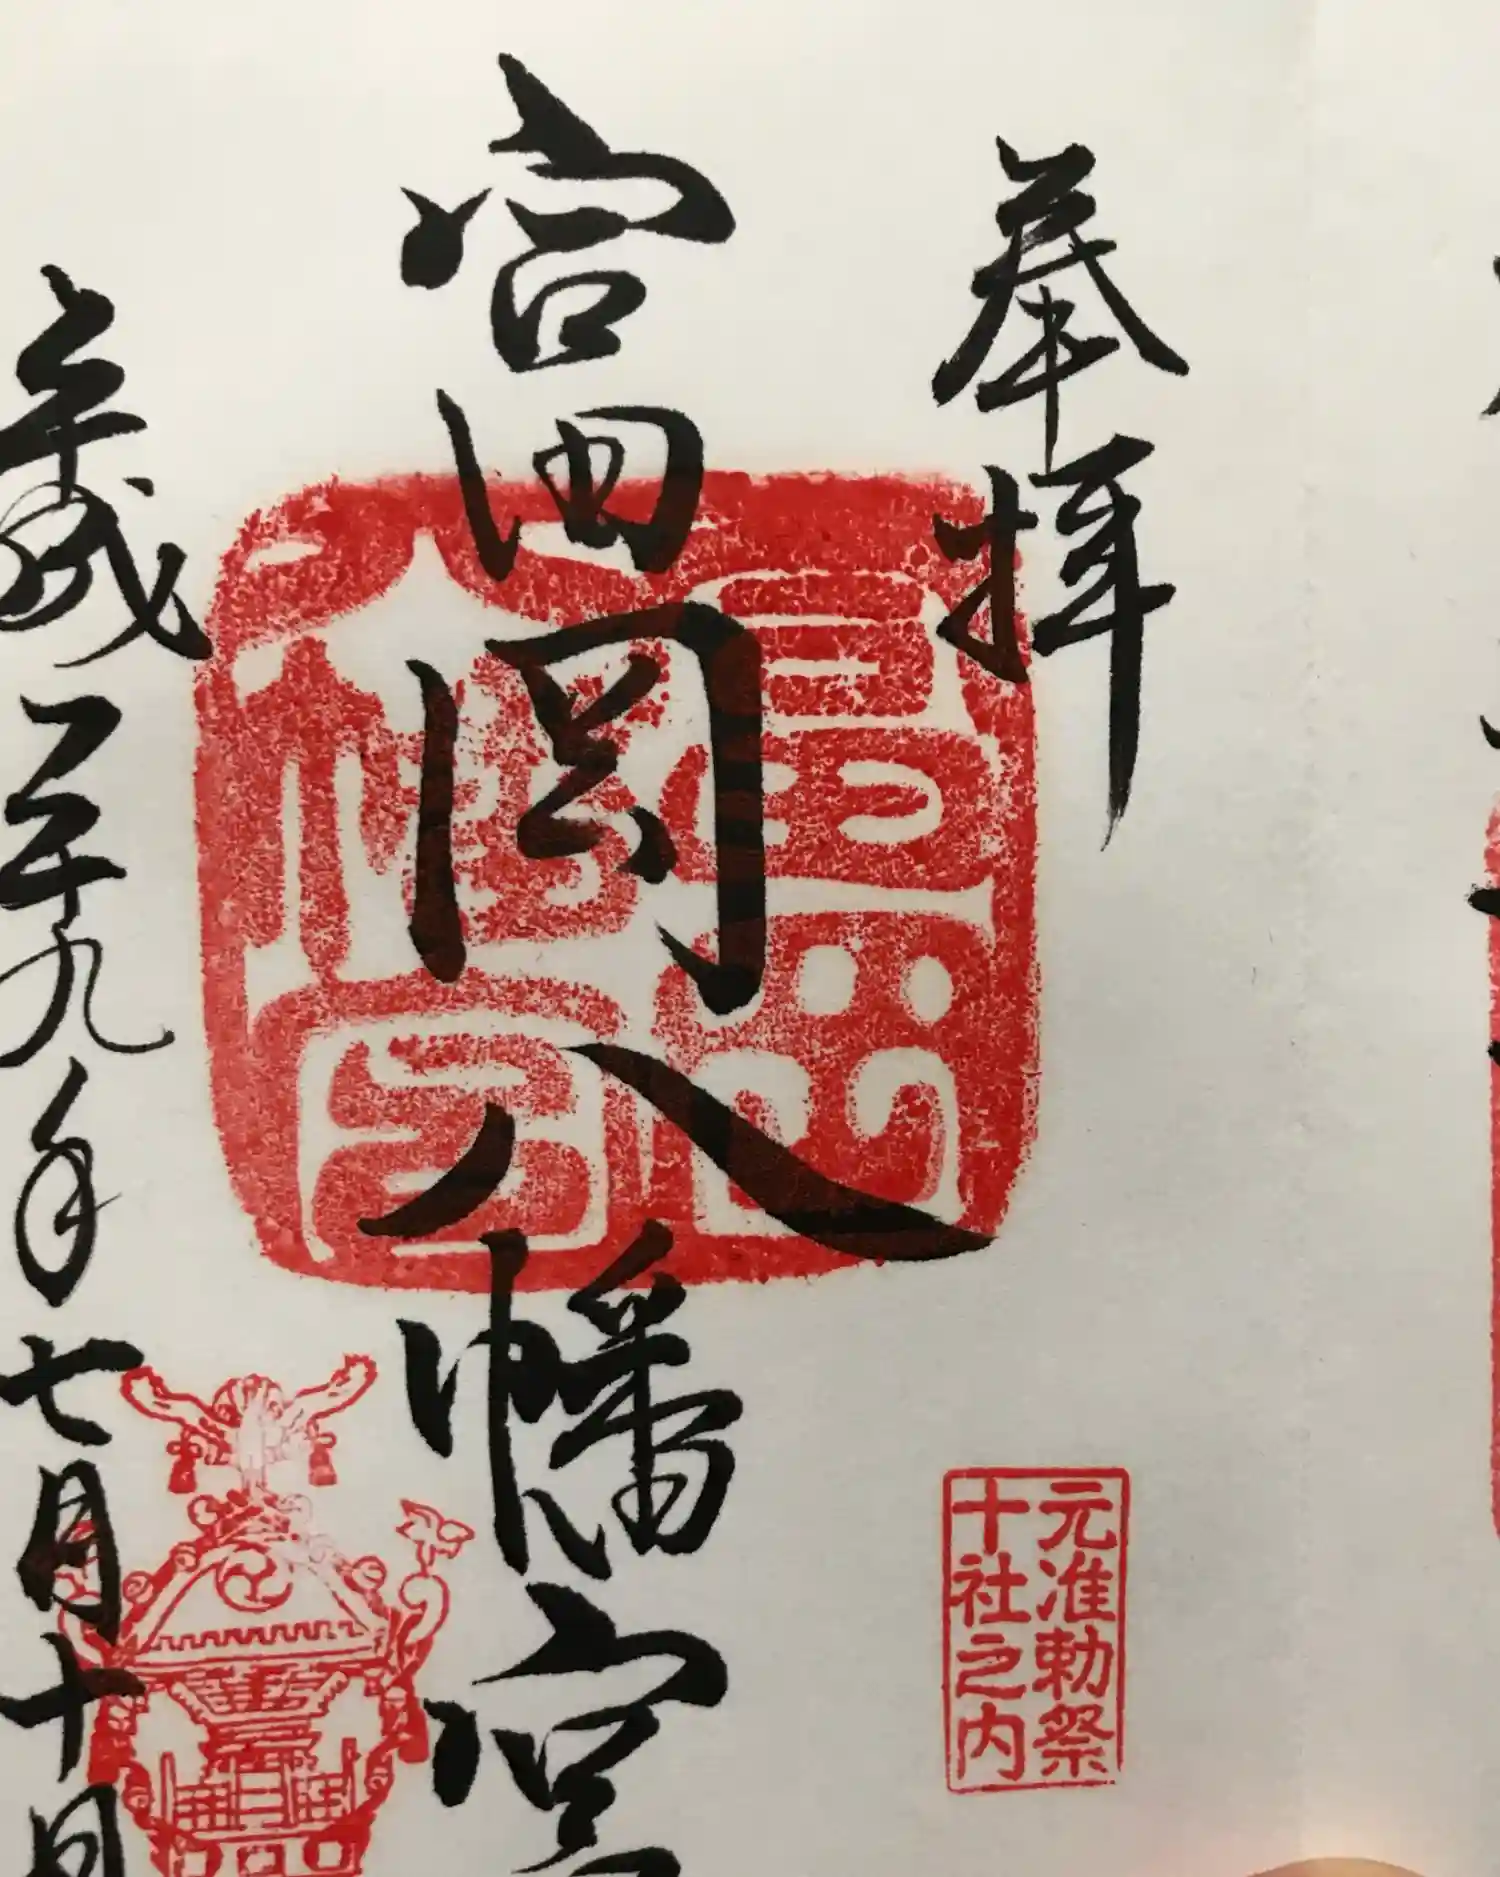 奉拝
元准勅祭
十社之内
富岡八幡宮
平成二十九年七月十日